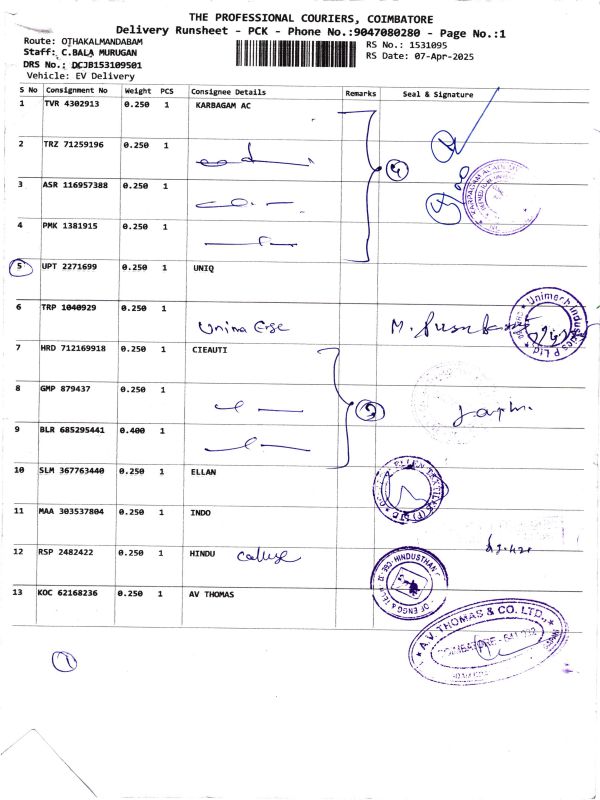 THE PROFESSIONAL COURIERS, COIMBATORE
Delivery Runsheet - PCK - Phone No.:9047080280 - Page No.:1
Route: OTHAKALMANDABAM
RS No.: 1531095
Staff: C.BALA MURUGAN
RS Date: 07-Apr-2025
DRS No.: DCJB153109501
Vehicle: EV Delivery
S No Consignment No Weight PCS Consignee Details Remarks Seal & Signature
1 TVR 4302913 0.250 1 KARBAGAM AC
2 TRZ 71259196 0.250 1
4
3 ASR 116957388 0.250 1
4 PMK 1381915 0.250 1
5 UPT 2271699 0.250 1 UNIQ
6 TRP 1040929 0.250 1
Unimech Industries P Ltd
7 HRD 712169918 0.250 1 CIEAUTI
8 GMP 879437 0.250 1
9 BLR 685295441 0.400 1
10 SLM 367763440 0.250 1 ELLAN
11 MAA 303537804 0.250 1 INDO
12 RSP 2482422 0.250 1 HINDU College
13 KOC 62168236 0.250 1 AV THOMAS
A.V. THOMAS & CO. LTD.,